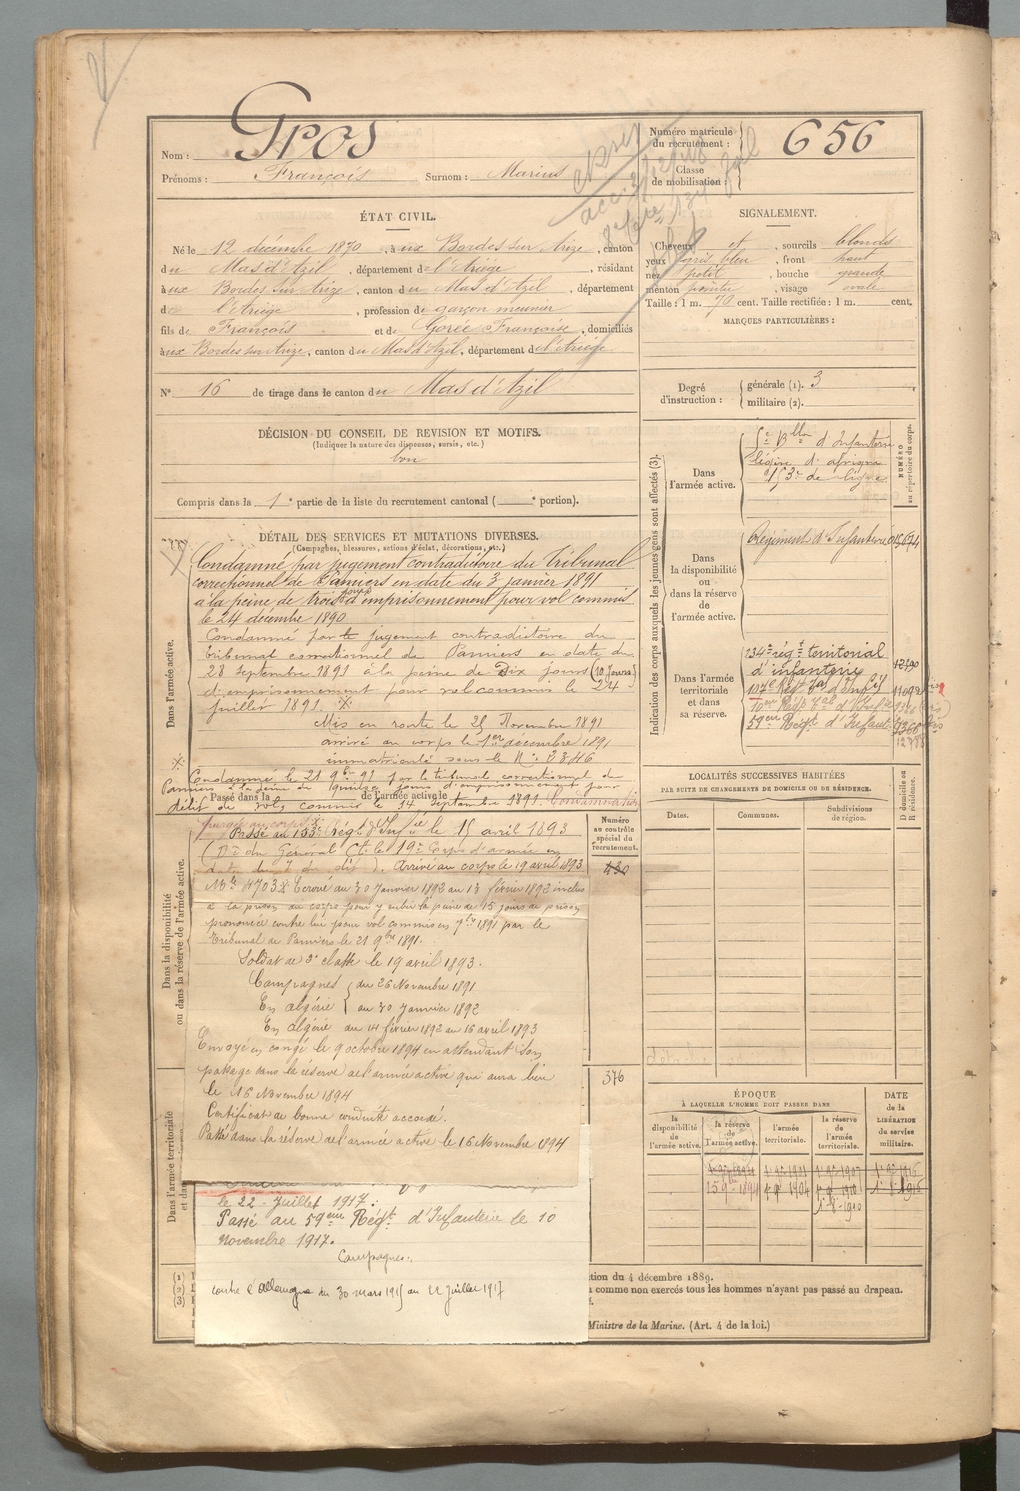 Nom : Gros
Prénoms : François Surnom : Marius
Numéro matricule du recrutement : 656
Classe de mobilisation :
ÉTAT CIVIL.
Né le 12 décembre 1870, à ux Bordes sur Arize, canton
du Mas d'Azil, département de l'Ariège, résidant
à ux Bordes sur Arize, canton du Mas d'Azil, département
de l'Ariège, profession de garçon meunier
fils de François et de Gorée Françoise, domiciliés
à ux Bordes sur Arize, canton du Mas d'Azil, département de l'Ariège
SIGNALEMENT.
Cheveux et, sourcils blonds
yeux gris bleu, front haut
nez petit, bouche grande
menton pointu, visage ovale
Taille : 1 m. 70 cent. Taille rectifiée : 1 m. cent.
MARQUES PARTICULIÈRES :
N° 16 de tirage dans le canton du Mas d'Azil
Degré d'instruction : générale (1). 3
militaire (2).
DÉCISION DU CONSEIL DE REVISION ET MOTIFS.
(Indiquer la nature des dispenses, sursis, etc.)
bon
Compris dans la 1e partie de la liste du recrutement cantonal ( e portion).
DÉTAIL DES SERVICES ET MUTATIONS DIVERSES.
(Campagnes, blessures, actions d'éclat, décorations, etc.)
Dans l'armée active.
Condamné par jugement contradictoire du Tribunal
correctionnel de Pamiers en date du 3 janvier 1891
à la peine de trois jours d'emprisonnement pour vol commis
le 24 décembre 1890
Condamné par le jugement contradictoire du
tribunal correctionnel de Pamiers en date du
28 septembre 1891 à la peine de Dix jours (10 jours)
d'emprisonnement pour vol commis le 24
juillet 1891. X
Mis en route le 25 Novembre 1891
arrivé au corps le 1er décembre 1891
immatriculé sous le N° 2846
X Condamné le 21 9bre 91 par le tribunal correctionnel de
Pamiers à la peine de quinze jours d'emprisonnement pour
Passé dans la de l'armée active le
délit de vol, commis le 14 septembre 1891. Condamnation
purgée au corps X
Dans la disponibilité ou dans la réserve de l'armée active.
Passé au 153e Régt d'Infie le 15 avril 1893
(Don du Général Ct le 19e Corps d'armée en
date du 7 du dit). Arrivé au corps le 19 avril 1893
Nle 4703. X Ecroué au 30 Janvier 1892 au 13 février 1892 inclus
à la prison du corps pour y subir la peine de 15 jours de prison
prononcée contre lui pour vol commis en 7bre 1891 par le
Tribunal de Pamiers le 21 9bre 1891.
Soldat de 2e classe le 19 avril 1893.
Campagnes du 26 Novembre 1891
En algérie au 30 Janvier 1892
En algérie du 14 février 1892 au 16 avril 1893
Envoyé en congé le 9 octobre 1894 en attendant son
passage dans la réserve de l'armée active qui aura lieu
le 16 Novembre 1894
Certificat de bonne conduite accordé.
Passé dans la réserve de l'armée active le 16 Novembre 1894
Dans l'armée territoriale
le 22 Juillet 1917.
Passé au 59eme Régt d'Infanterie le 10
novembre 1917.
Campagnes :
contre l'Allemagne du 30 mars 1915 au 22 juillet 1917
Numéro au contrôle spécial du recrutement.
430
376
Indication des corps auxquels les jeunes gens sont affectés (3).
NUMÉRO au répertoire du corps.
Dans l'armée active.
5e Bllon d'Infanterie
légère d'afrique
153e de ligne
Dans la disponibilité ou dans la réserve de l'armée active.
Régiment d'Infanterie
Dans l'armée territoriale et dans sa réserve.
134e régt territorial
d'infanterie
107e Régt Tal d'Inf
10eme Régt Tal d'Infie
59eme Régt d'Infant
LOCALITÉS SUCCESSIVES HABITÉES
PAR SUITE DE CHANGEMENTS DE DOMICILE OU DE RÉSIDENCE.
Dates. Communes. Subdivisions de région. D domicile ou R résidence.
ÉPOQUE
À LAQUELLE L'HOMME DOIT PASSER DANS
DATE de la LIBÉRATION du service militaire.
la disponibilité de l'armée active. la réserve de l'armée active. l'armée territoriale. la réserve de l'armée territoriale.
(1)
(2)
(3)
ction du 4 décembre 1889.
comme non exercés tous les hommes n'ayant pas passé au drapeau.
Ministre de la Marine. (Art. 4 de la loi.)